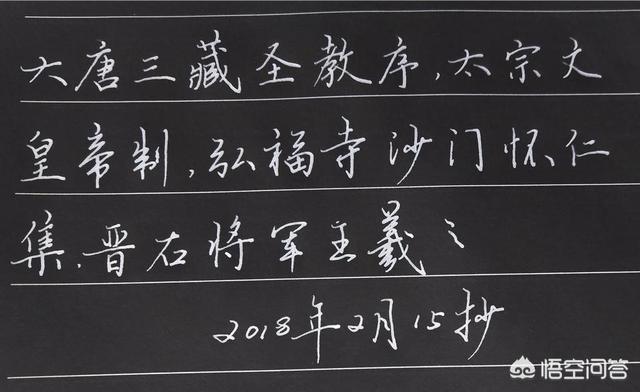 大唐三藏圣教序,太宗文
皇帝制,弘福寺沙门怀仁
集,晋右将军王羲之
2018年2月15抄
悟空问答